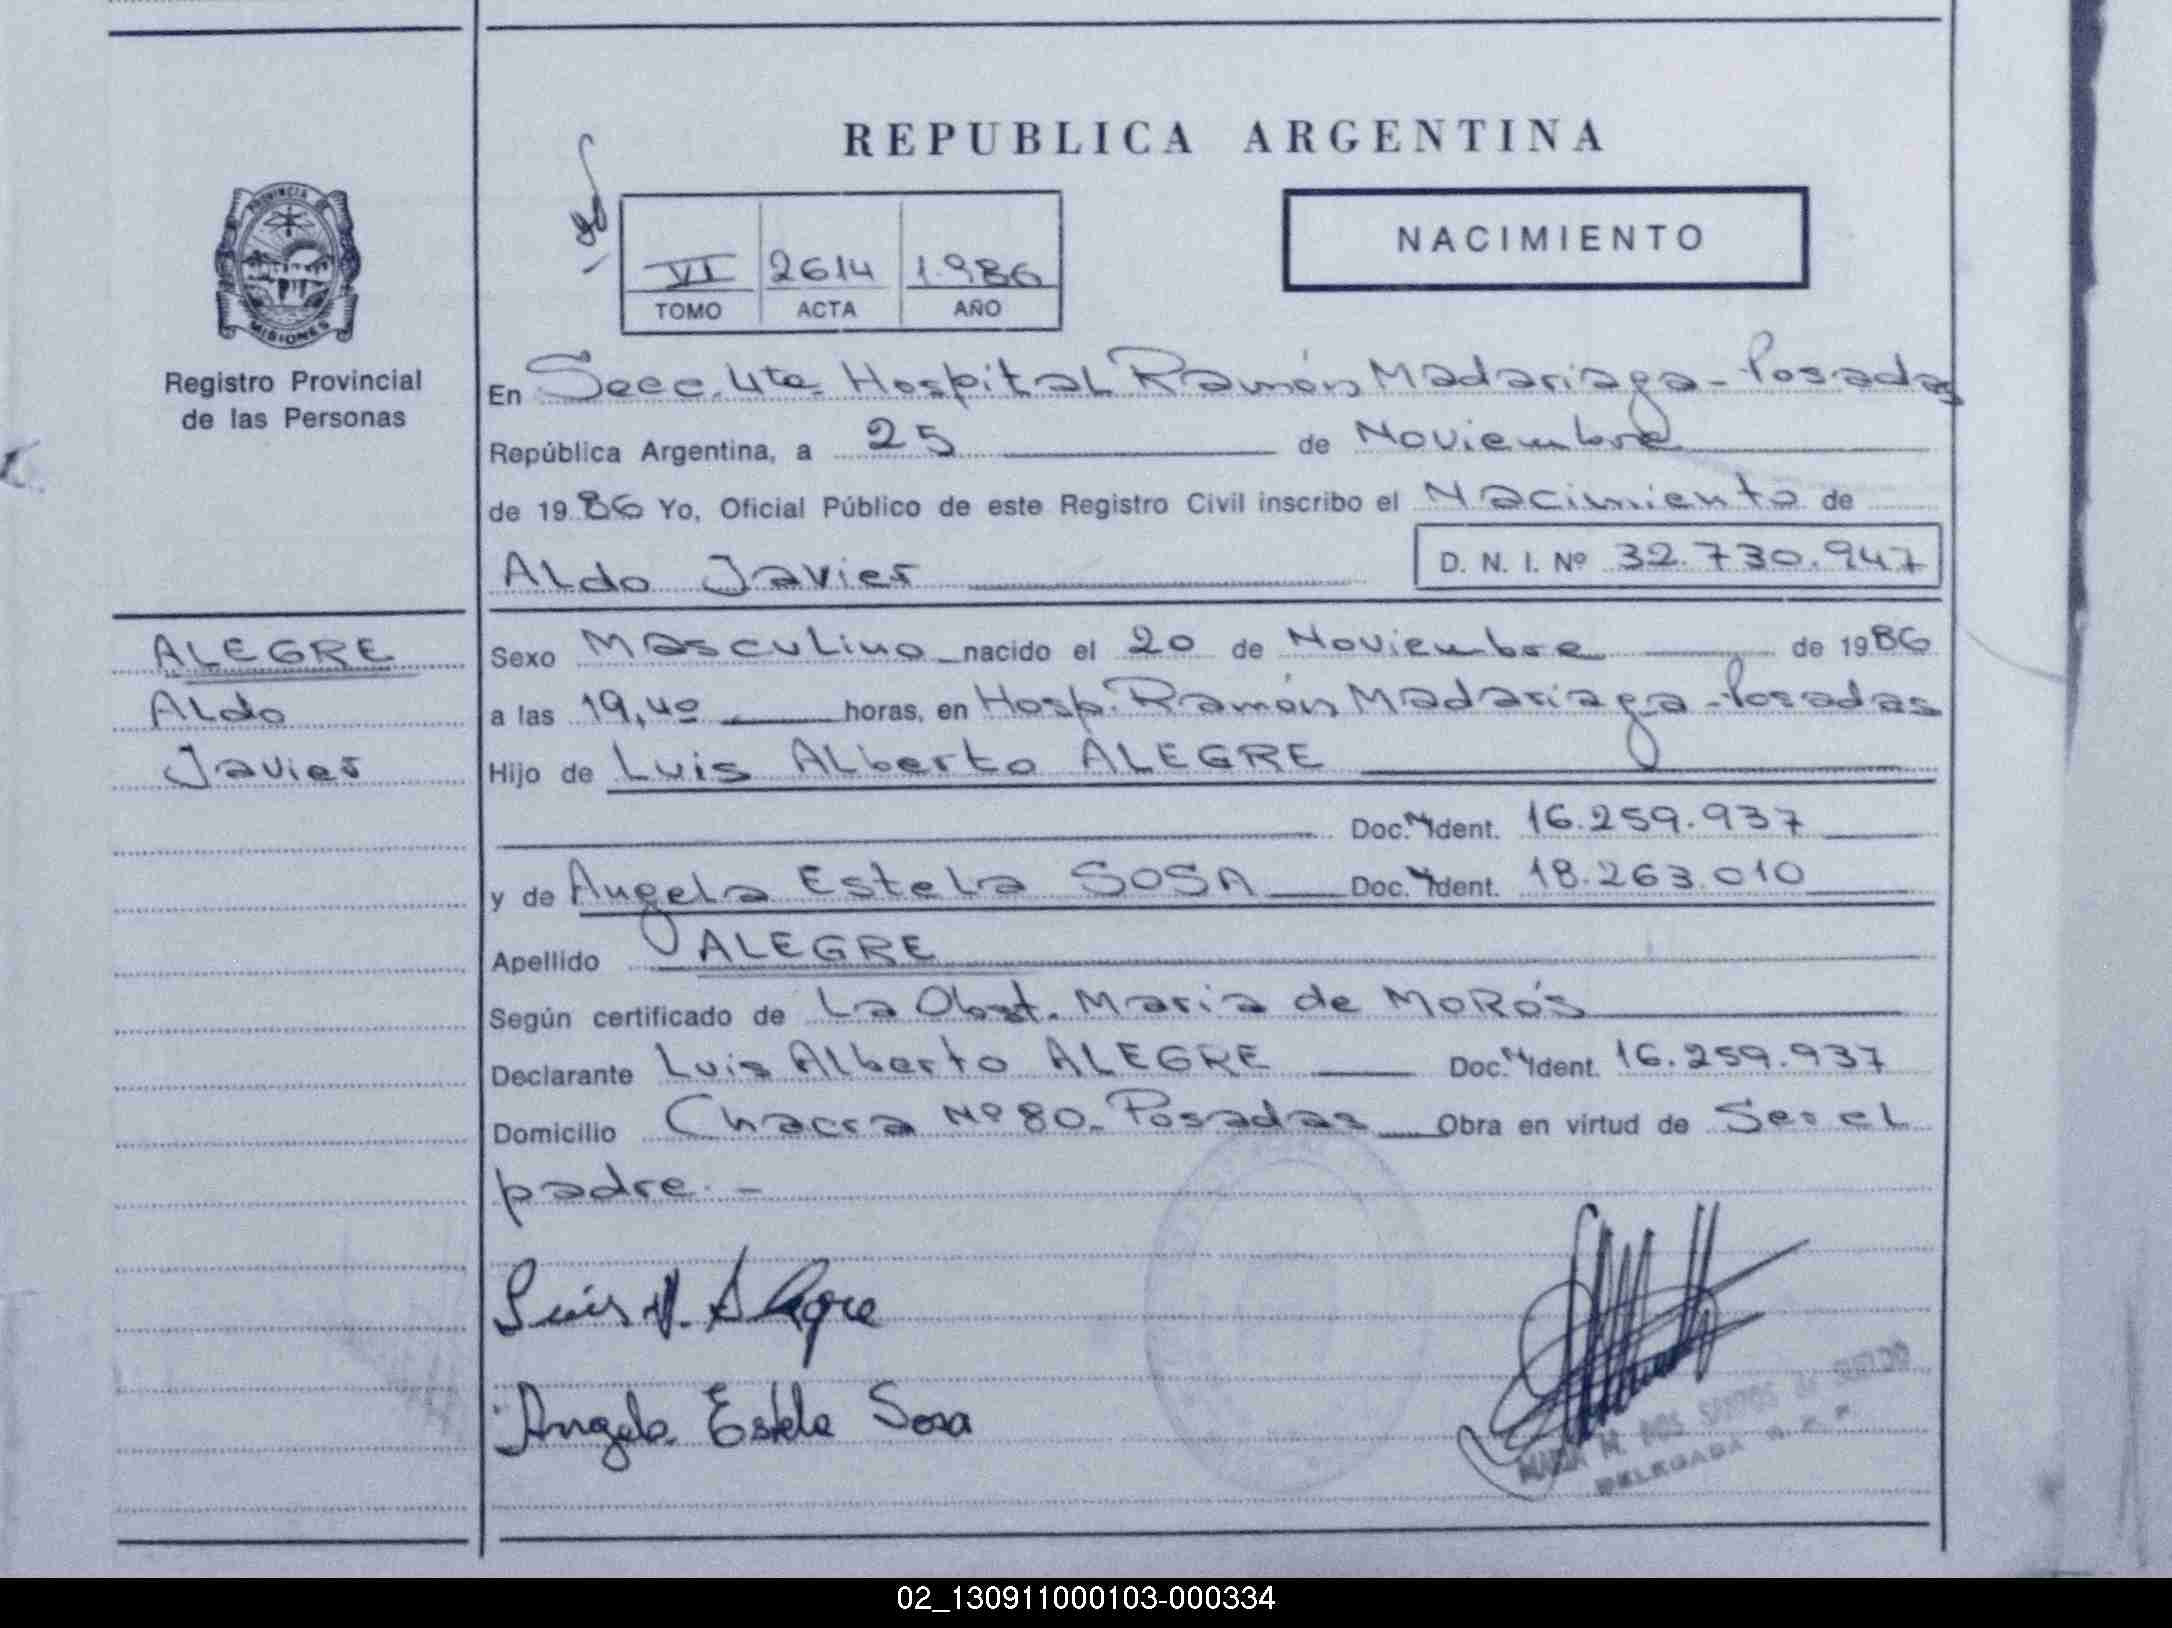 REPUBLICA ARGENTINA
PROVINCIA DE
MISIONES
Registro Provincial
de las Personas
VI 2614 1.986
TOMO ACTA AÑO
NACIMIENTO
En Secc. 4ta. Hospital Ramón Madariaga - Posadas
República Argentina, a 25 de Noviembre
de 1986 Yo, Oficial Público de este Registro Civil inscribo el Nacimiento de
Aldo Javier D. N. I. Nº 32.730.947
ALEGRE
Aldo
Javier
Sexo Masculino nacido el 20 de Noviembre de 1986
a las 19,40 horas, en Hosp. Ramón Madariaga - Posadas
Hijo de Luis Alberto ALEGRE
Doc. N Ident. 16.259.937
y de Angela Estela SOSA Doc. N Ident. 18.263.010
Apellido ALEGRE
Según certificado de La Obst. Maria de MORÓS
Declarante Luis Alberto ALEGRE Doc. N Ident. 16.259.937
Domicilio Chacra Nº 80. Posadas Obra en virtud de Ser el
padre. -
Luis A. Alegre
Angela Estela Sosa
MARIA M. DOS SANTOS de
DELEGADA R. P. P.
02_130911000103-000334